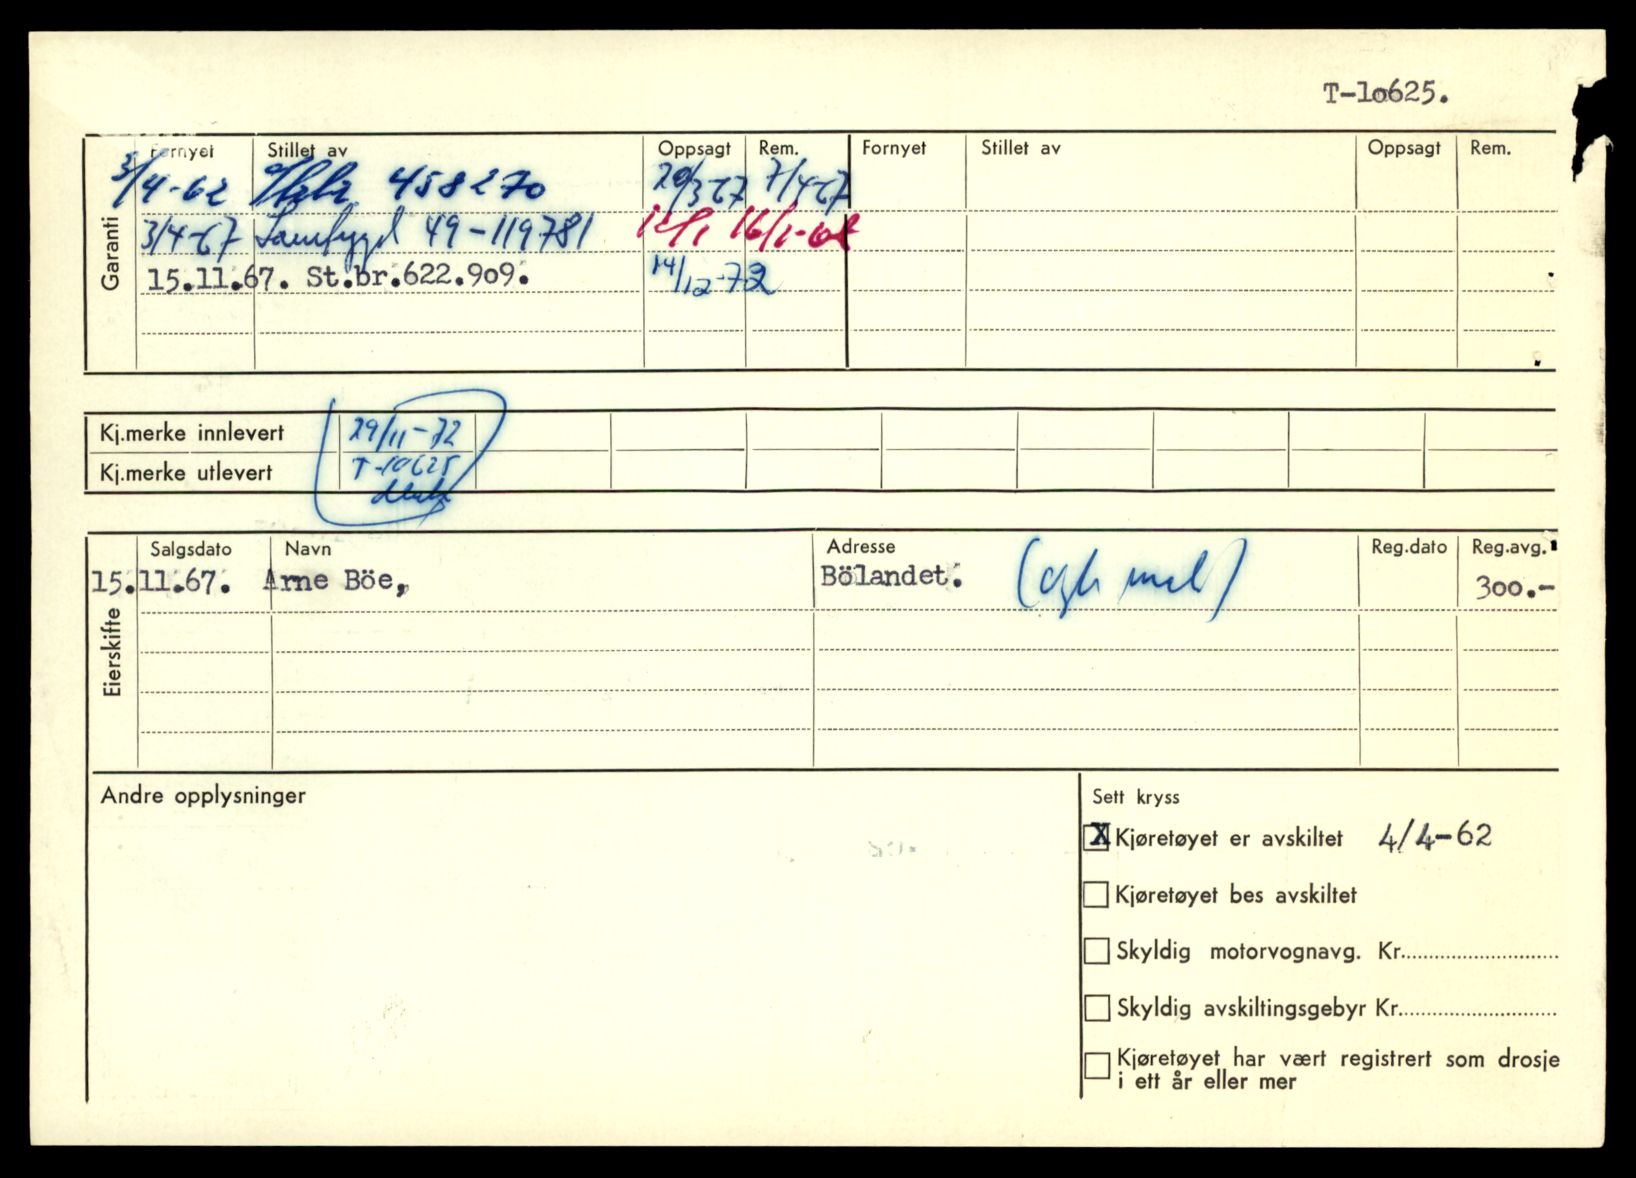 T-10625.
Garanti
Fornyet Stillet av Oppsagt Rem. Fornyet Stillet av Oppsagt Rem.
3/4-62 458270 20/3-67 7/4-67
3/4-67 Samtrygd 49-119781 16/1-68
15.11.67. St.br.622.909. 14/12-72
Kj.merke innlevert 29/11-72
Kj.merke utlevert T-10625
Eierskifte
Salgsdato Navn Adresse Reg.dato Reg.avg.
15.11.67. Arne Böe, Bölandet. 300.-
Andre opplysninger
Sett kryss
X Kjøretøyet er avskiltet 4/4-62
Kjøretøyet bes avskiltet
Skyldig motorvognavg. Kr.
Skyldig avskiltingsgebyr Kr.
Kjøretøyet har vært registrert som drosje
i ett år eller mer